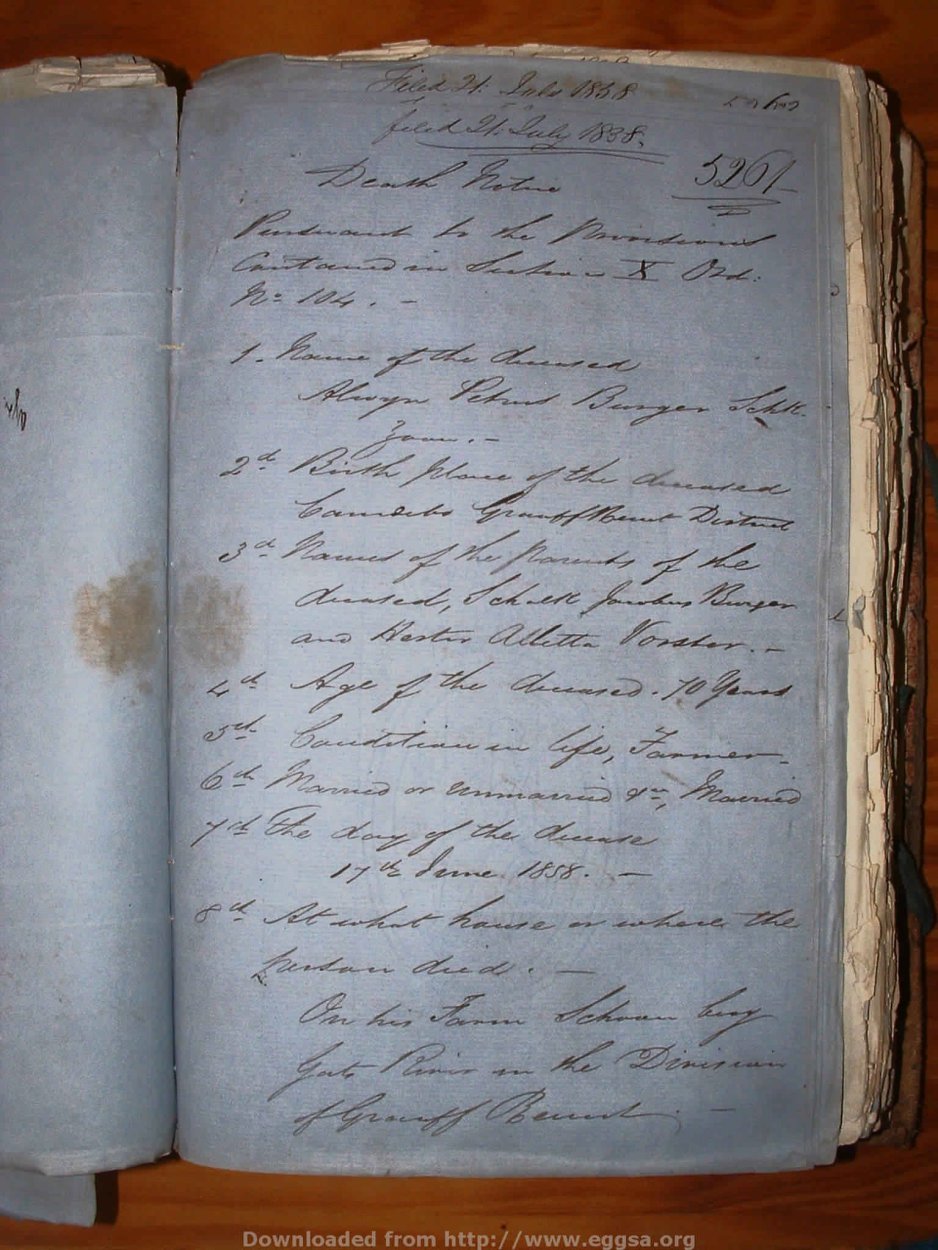 Filed 21: July 1858
filed 21: July 1858.
5261
Death Notice
Pursuant to the Provisions
Contained in Section X Ord:
No 104. -
1. Name of the deceased
Alwyn Petrus Burger Schk.
Zoon. -
2d Birth place of the deceased
Camdebo Graaff Reinet District
3d Names of the Parents of the
deceased, Schalk Jacobus Burger
and Hester Alletta Vorster. -
4th Age of the deceased. 70 Years
5th Condition in life, Farmer -
6th Married or Unmarried &c, Married
7th The day of the decease
17th June 1858. -
8th At what house or where the
person died. -
On his Farm Schoon berg
Gats River in the Division
of Graaff Reinet. -
Downloaded from http://www.eggsa.org